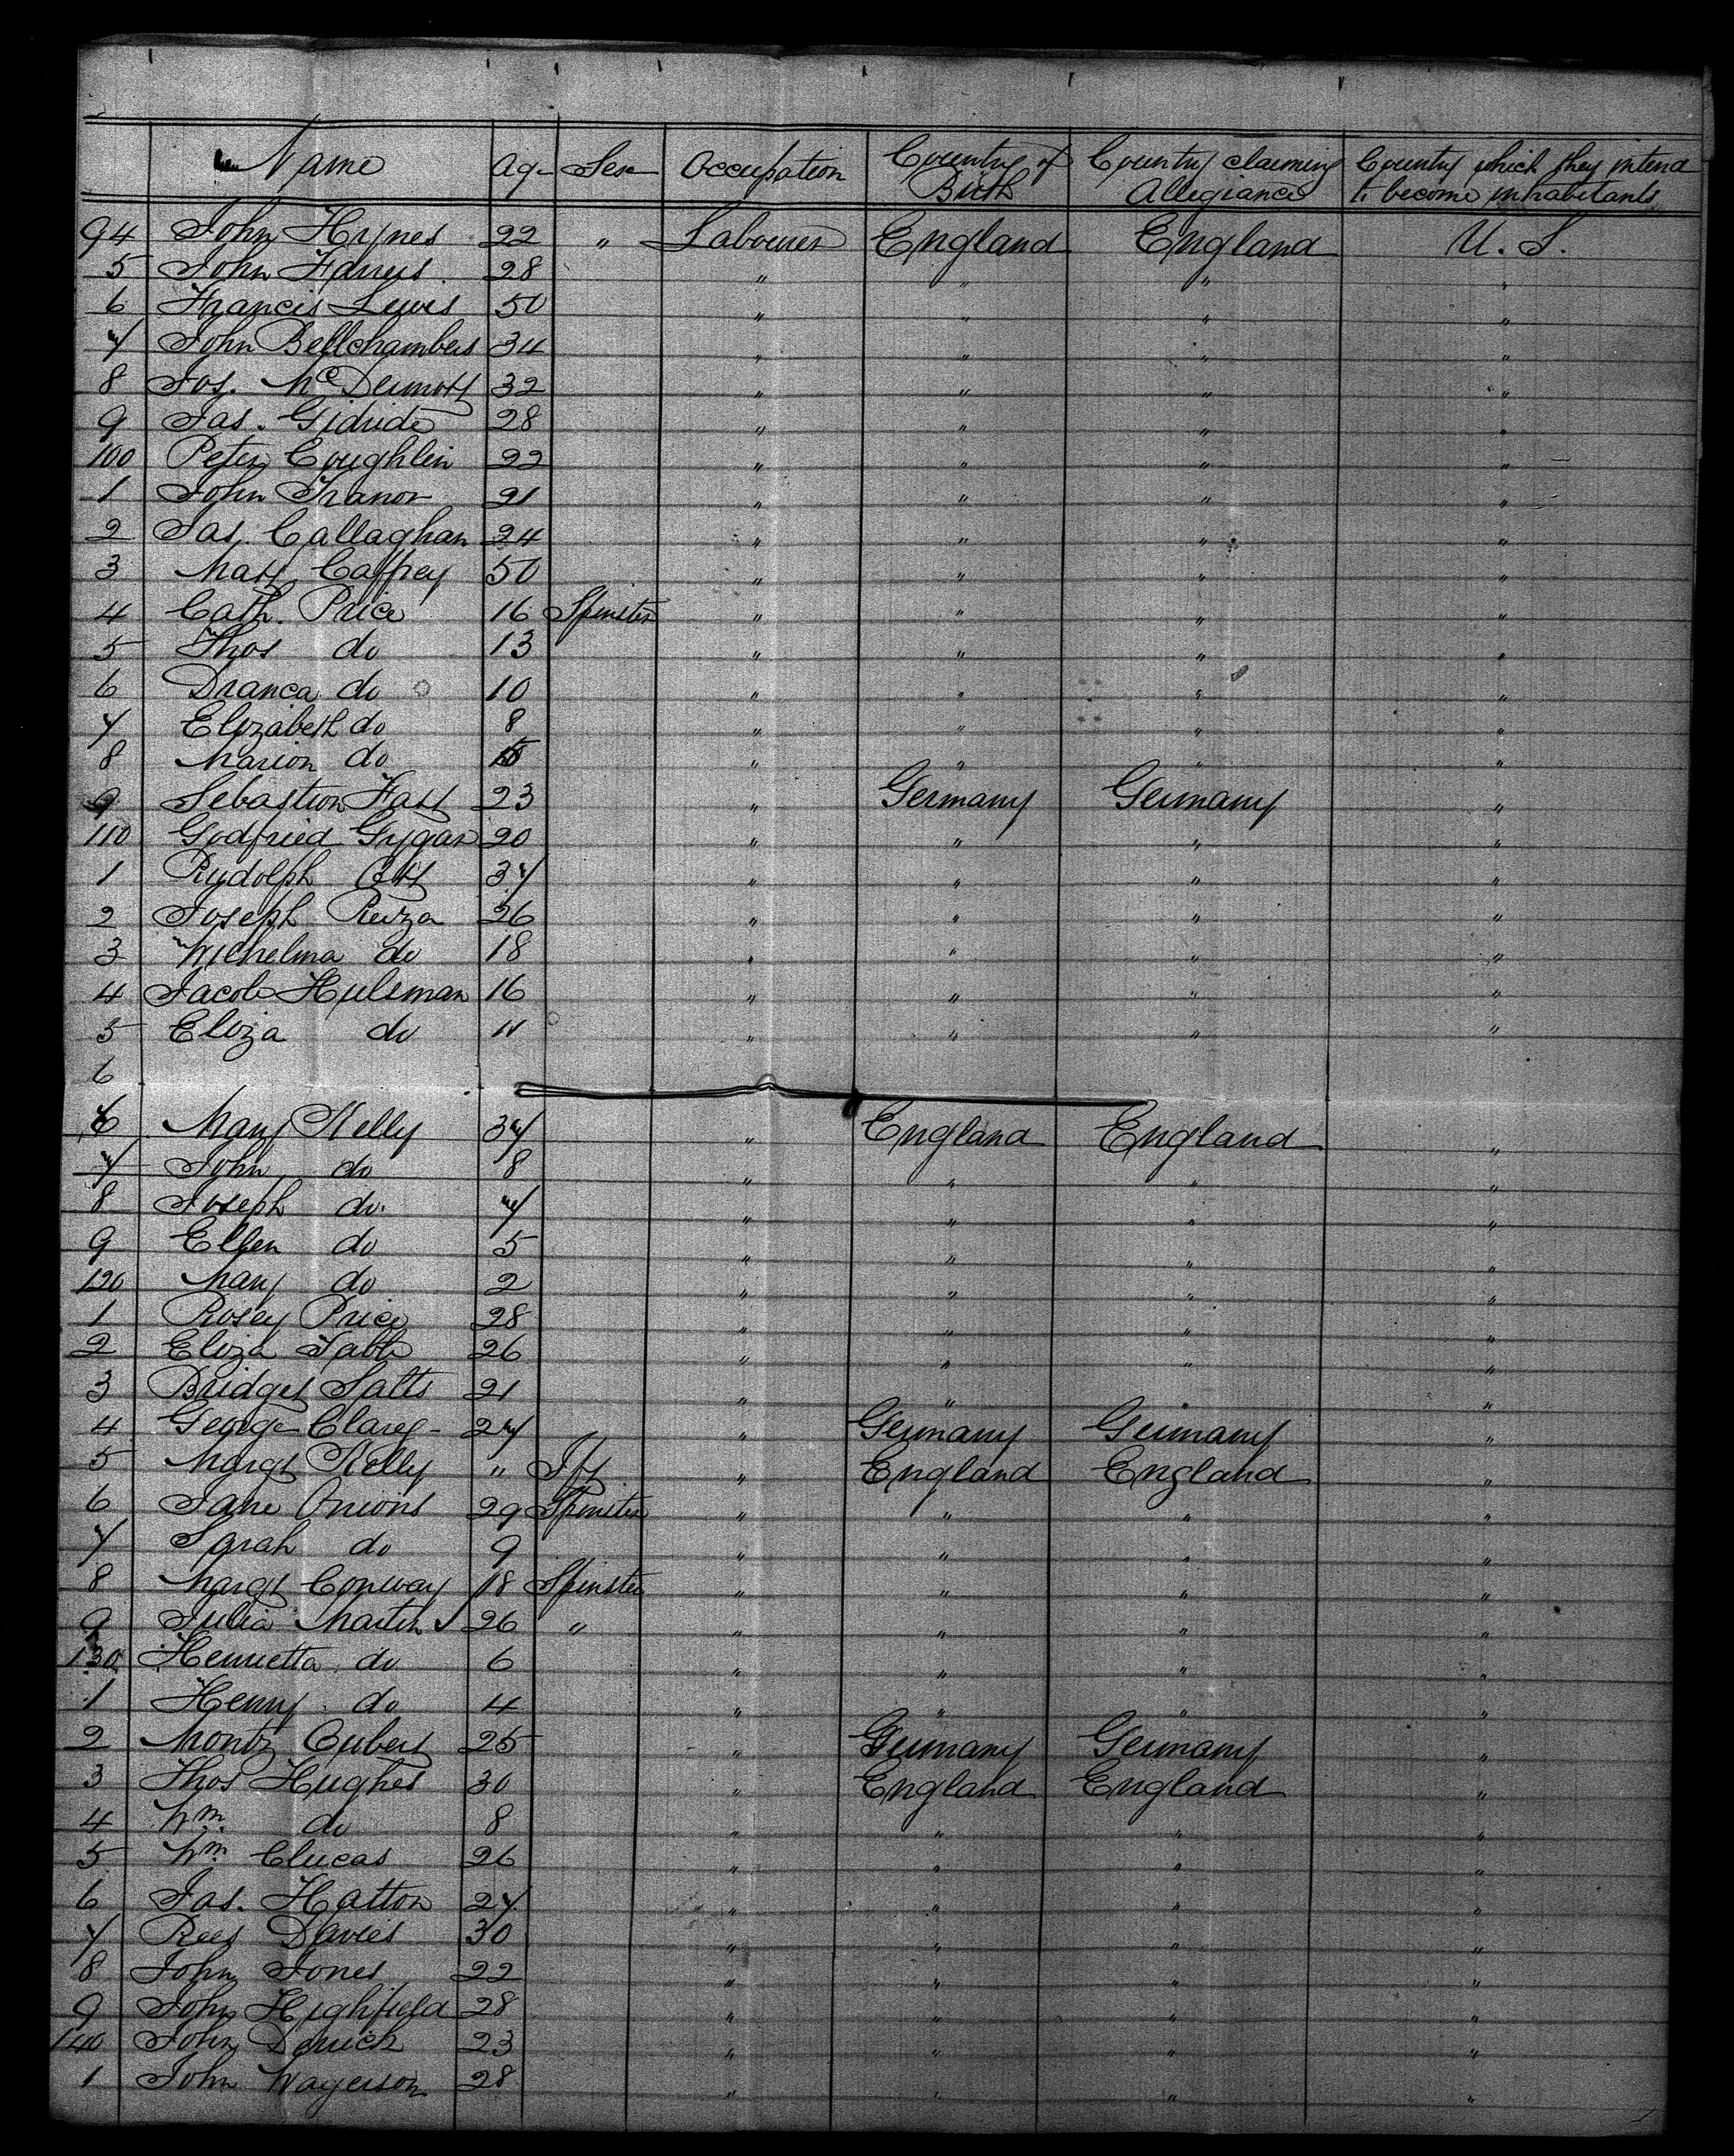 Name Age Sex Occupation Country of Birth Country claiming Allegiance Country which they intend to become inhabitants
94 John Hynes 22 " Labourer England England U. S.
5 John 28 " " " "
6 Francis Lewis 50 " " " "
7 John Bellchambers 34 " " " "
8 Jos. McDermott 32 " " " "
9 Jas. 28 " " " "
100 Peter Coughlin 22 " " " "
1 John Tranor 21 " " " "
2 Jas. Callaghan 24 " " " "
3 Matt Caffrey 50 " " " "
4 Cath. Price 16 Spinster " " " "
5 Thos do 13 " " " "
6 do 10 " " " "
7 Elizabeth do 8 " " " "
8 Marion do " " " "
9 Sebastion 23 " Germany Germany "
110 Godfried 20 " " " "
1 Rudolph Ott 37 " " " "
2 Joseph 26 " " " "
3 Wilhelma do 18 " " " "
4 Jacob Hulsman 16 " " " "
5 Eliza do 11 " " " "
6
6 Mary Kelly 37 " England England "
7 John do 8 " " " "
8 Joseph do. 7 " " " "
9 Ellen do 5 " " " "
120 Mary do 2 " " " "
1 Rosey Price 28 " " " "
2 Eliza 26 " " " "
3 Bridget Salts 21 " " " "
4 George Clarey 27 " Germany Germany "
5 Margt Kelly " " England England "
6 Jane Onions 29 Spinster " " " "
7 Sarah do 9 " " " "
8 Margt Conway 18 Spinster " " " "
9 Julia Martin 26 " " " " "
130 Henrietta do 6 " " " "
1 Henry do 4 " " " "
2 Moritz 25 " Germany Germany "
3 Thos Hughes 30 " England England "
4 Wm. do 8 " " " "
5 Wm. Clucas 26 " " " "
6 Jas. Hatton 27 " " " "
7 Rees Davies 30 " " " "
8 John Jones 22 " " " "
9 John Highfield 28 " " " "
140 John 23 " " " "
1 John Wagerson 28 " " " "